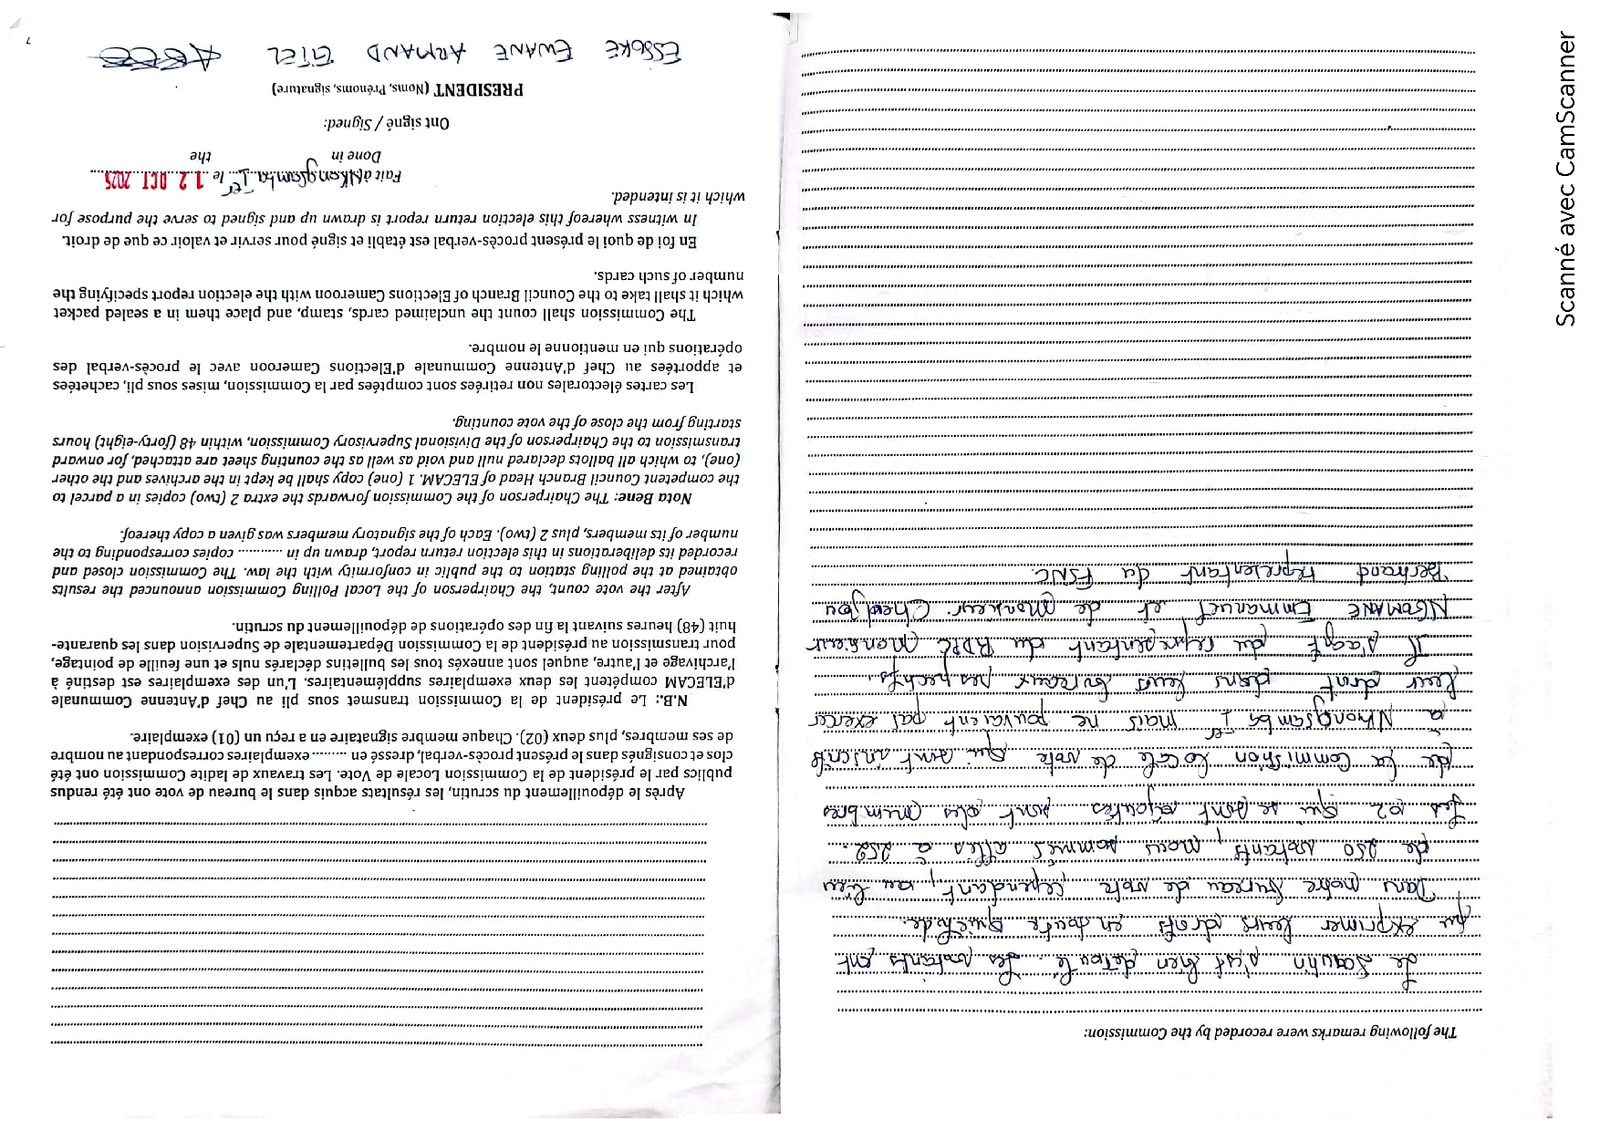 The following remarks were recorded by the Commission:
Le scrutin s'est bien déroulé. Les votants ont
pu exprimer leurs droits en toute quiétude.
Dans notre bureau de vote cependant, au lieu
de 250 votants, nous sommes allés à 252.
Les 02 qui se sont ajoutés sont des membres
de la Commission locale de vote qui sont inscrits
à Nkongsamba Ier mais ne pouvaient pas exercer
leur droit dans leurs bureaux respectifs.
Il s'agit du représentant du RDPC Monsieur
NGOMANE Emmanuel et de Monsieur
Bertrand représentant du FSNC.
Après le dépouillement du scrutin, les résultats acquis dans le bureau de vote ont été rendus
publics par le président de la Commission Locale de Vote. Les travaux de ladite Commission ont été
clos et consignés dans le présent procès-verbal, dressé en .......... exemplaires correspondant au nombre
de ses membres, plus deux (02). Chaque membre signataire en a reçu un (01) exemplaire.
N.B.: Le président de la Commission transmet sous pli au Chef d'Antenne Communale
d'ELECAM compétent les deux exemplaires supplémentaires. L'un des exemplaires est destiné à
l'archivage et l'autre, auquel sont annexés tous les bulletins déclarés nuls et une feuille de pointage,
pour transmission au président de la Commission Départementale de Supervision dans les quarante-
huit (48) heures suivant la fin des opérations de dépouillement du scrutin.
After the vote count, the Chairperson of the Local Polling Commission announced the results
obtained at the polling station to the public in conformity with the law. The Commission closed and
recorded its deliberations in this election return report, drawn up in ............ copies corresponding to the
number of its members, plus 2 (two). Each of the signatory members was given a copy thereof.
Nota Bene: The Chairperson of the Commission forwards the extra 2 (two) copies in a parcel to
the competent Council Branch Head of ELECAM. 1 (one) copy shall be kept in the archives and the other
(one), to which all ballots declared null and void as well as the counting sheet are attached, for onward
transmission to the Chairperson of the Divisional Supervisory Commission, within 48 (forty-eight) hours
starting from the close of the vote counting.
Les cartes électorales non retirées sont comptées par la Commission, mises sous pli, cachetées
et apportées au Chef d'Antenne Communale d'Elections Cameroon avec le procès-verbal des
opérations qui en mentionne le nombre.
The Commission shall count the unclaimed cards, stamp, and place them in a sealed packet
which it shall take to the Council Branch of Elections Cameroon with the election report specifying the
number of such cards.
En foi de quoi le présent procès-verbal est établi et signé pour servir et valoir ce que de droit.
In witness whereof this election return report is drawn up and signed to serve the purpose for
which it is intended.
Fait à Nkongsamba Ier le 12 OCT 2025
Done in the
Ont signé / Signed:
PRESIDENT (Noms, Prénoms, signature)
ESSOKE EWANE ARMAND
7
Scanné avec CamScanner